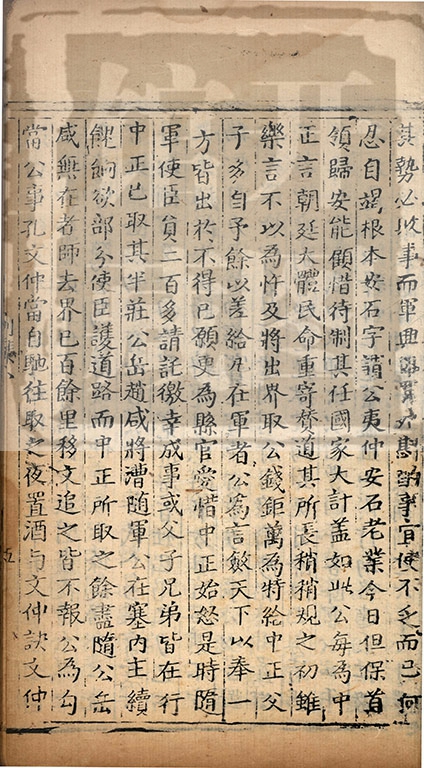 其勢必收事而軍興事宜使不乏而已何
忍自撥根本安石字謂公夷仲安石老業今日但保首
領歸安能顧惜待制其任國家大計蓋如此公每為中
正言朝廷大體民命重寄贊道其所長稍稍規之初雖
樂言不以為忤及將出界取公錢鉅萬為特給中正父
子多自予餘以差給凡在軍者公為言斂天下以奉一
方皆出於不得已願更為縣官愛惜中正始怒是時隨
軍使臣員二百多請託徼幸成事或父子兄弟皆在行
中正已取其半莊公岳趙咸將漕隨軍公在塞內主續
餽餉欲部分使臣護道路而中正所取之餘盡隨公岳
咸無在者師去界已百餘里移文追之皆不報公為勾
當公事孔文仲當自馳往取之夜置酒与文仲訣文仲
五